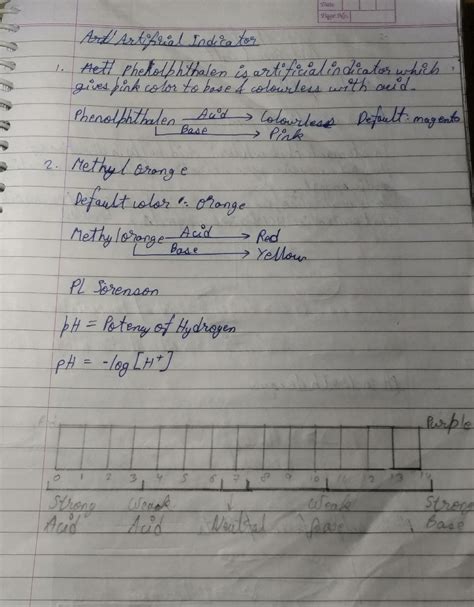 Date:
Page No.
Artificial Indicator
1. Phenolphthalen is artificial indicator which
gives pink color to base & colourless with acid.
Phenolphthalen Acid → Colourless Default: magenta
Base → Pink
2. Methyl Orange
Default color :- Orange
Methyl orange Acid → Red
Base → Yellow
PL Sorenson
pH = Poteny of Hydrogen
pH = -log [H+]
Red Purple
0 1 2 3 4 5 6 7 8 9 10 11 12 13 14
Strong Weak Weak Strong
Acid Acid Neutral Base Base